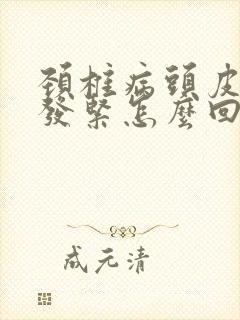 頸椎病頭皮
發緊怎麼回
成元清